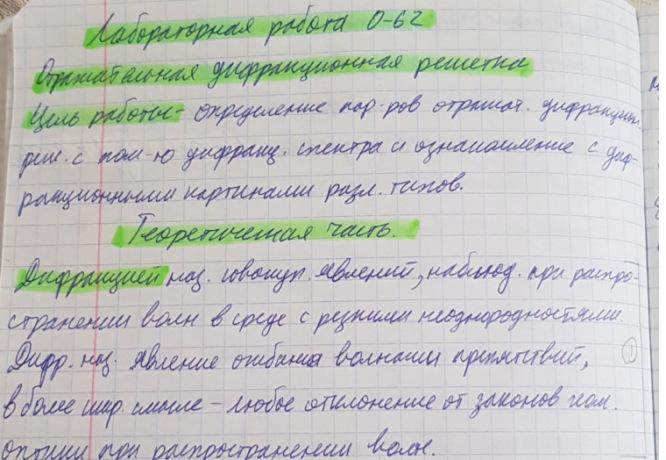 Лабораторная работа О-62
Отражательная дифракционная решетка
Цель работы - определение пар-ров отражат. дифракцион.
реш. с пом-ю дифракц. спектра и ознакомление с диф-
ракционными картинами разл. типов.
Теоретическая часть.
Дифракцией наз. совокуп. явлений, наблюд. при распро-
странении волн в среде с резкими неоднородностями.
Дифр. наз. явление огибания волнами препятствий, ①
в более шир. смысле - любое отклонение от законов геом.
оптики при распространении волн.